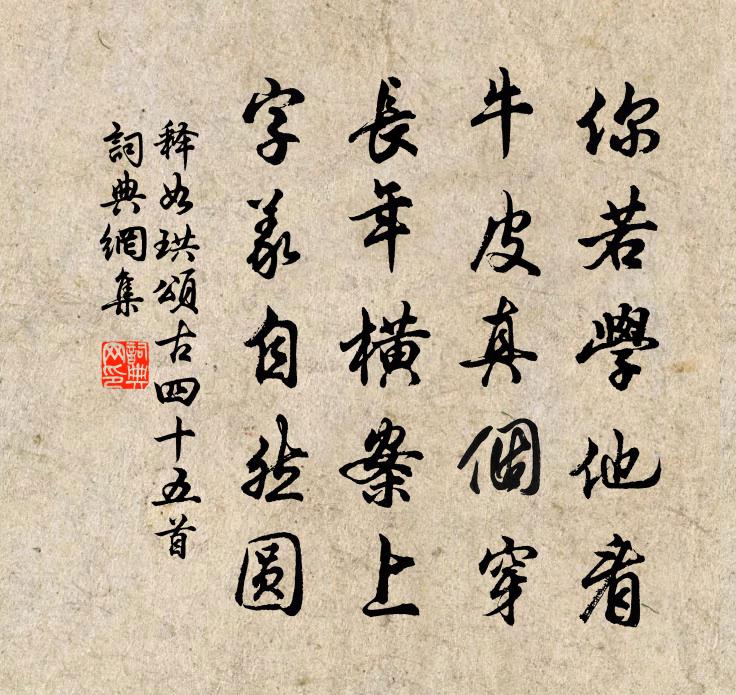 你若學他看
牛皮真個穿
長年橫案上
字義自然圆
释如珙頌古四十五首
詞典網集
詞典网印